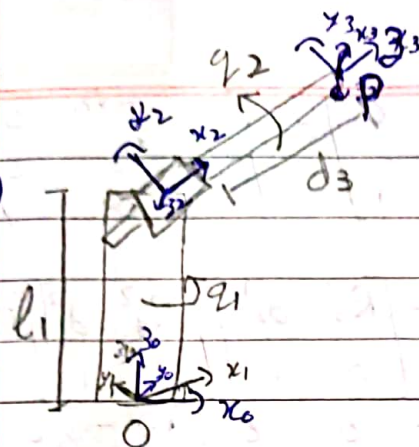 y3 x3 z3
q2
P
y2 x2
z2
d3
l1
q1
z0
y0 x1
x0
O